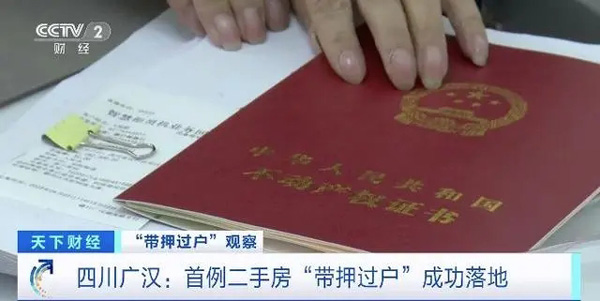 CCTV 2
财经
中华人民共和国
不动产权证书
天下财经
“带押过户”观察
四川广汉：首例二手房“带押过户”成功落地